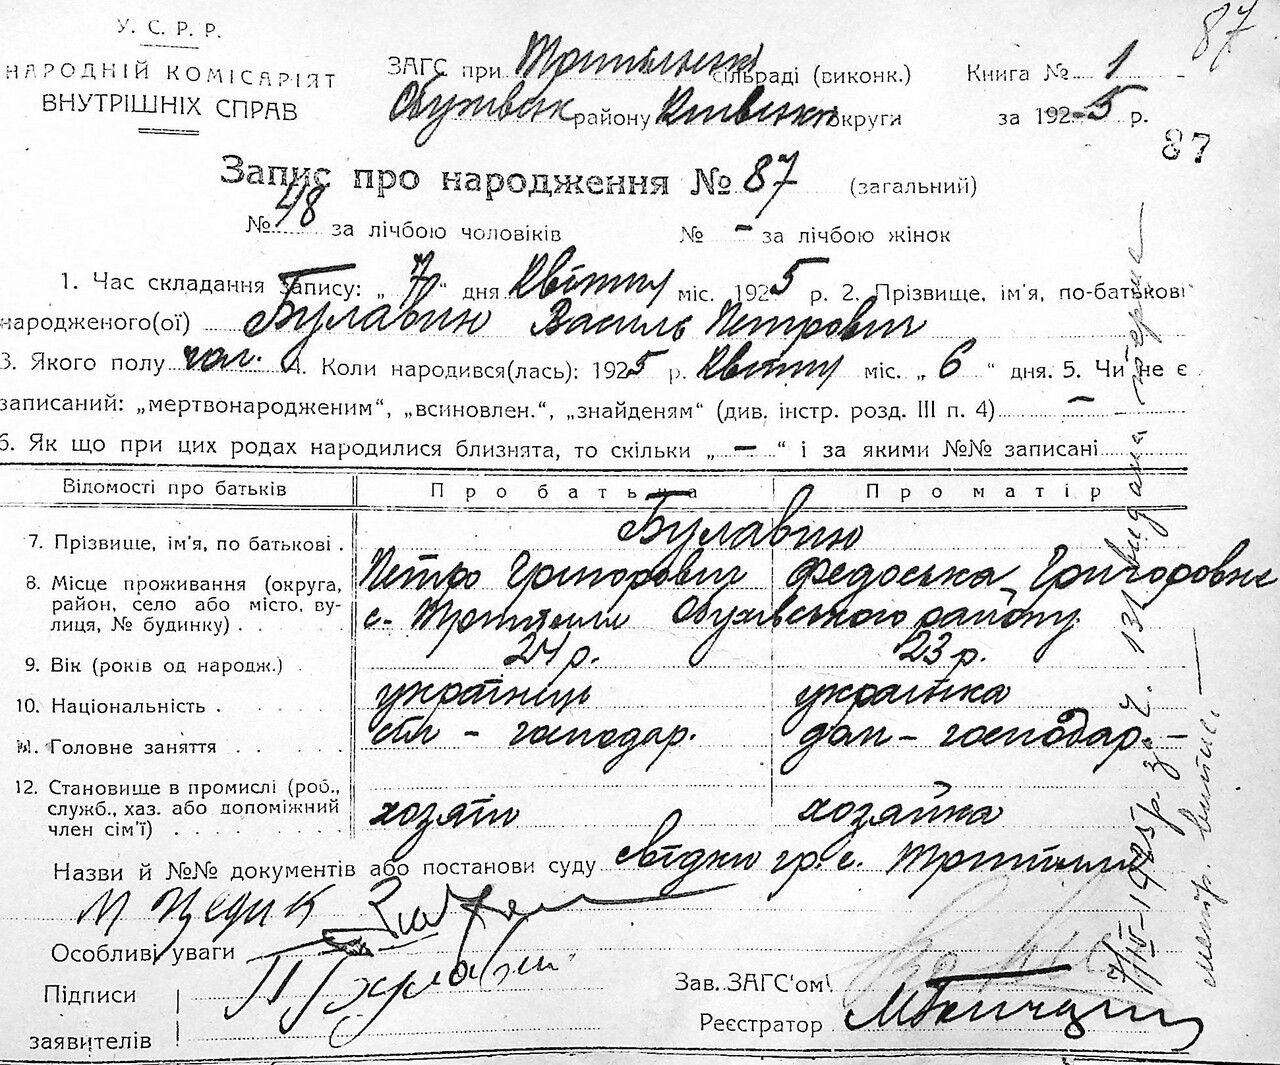 87
У. С. Р. Р.
НАРОДНІЙ КОМІСАРІЯТ
ВНУТРІШНІХ СПРАВ
ЗАГС при Трипільській сільраді (виконк.)
Обухівськ району Київськ округи
Книга № 1
за 1925 р.
87
Запис про народження № 87 (загальний)
№ 48 за лічбою чоловіків № - за лічбою жінок
1. Час складання запису: „ 7 " дня Квітня міс. 1925 р. 2. Прізвище, ім'я, по-батькові
народженого(ої) Булавин Василь Петрович
3. Якого полу чол. 4. Коли народився(лась): 1925 р. Квітня міс. „ 6 " дня. 5. Чи не є
записаний: „мертвонародженим“, „всиновлен.“, „знайденям“ (див. інстр. розд. III п. 4) -
6. Як що при цих родах народилися близнята, то скільки „ - " і за якими №№ записані
Відомості про батьків Про батька Про матір
7. Прізвище, ім'я, по батькові . Булавин
Петро Григорович Федоська Григоровна
8. Місце проживання (округа, район, село або місто, вулиця, № будинку) . . с. Трипілля Обухівського району
9. Вік (років од народж.) . 24 р. 23 р.
10. Національність . українець українка
11. Головне заняття сіл - господар. дом - господар. -
12. Становище в промислі (роб., служб., хаз. або допоміжний член сім'ї) хозяїн хозяйка
Назви й №№ документів або постанови суду свідки гр. с. Трипілля
Особливі уваги
Підписи
заявителів
П Булавин
Зав. ЗАГС'ом
Реєстратор
1925 р. за ч. 131 видана